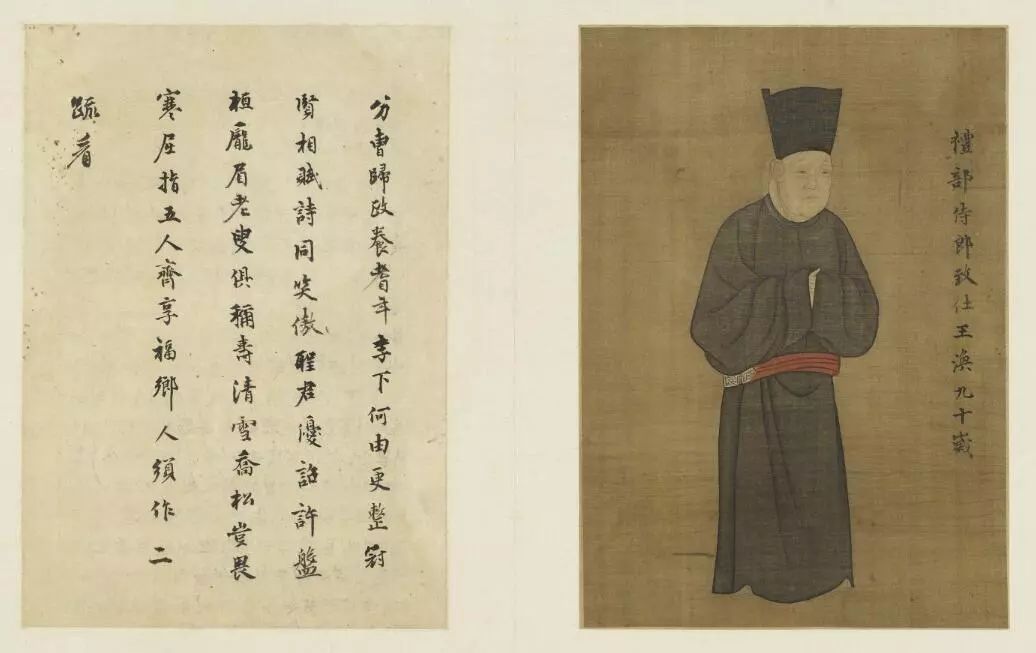 禮部侍郎致仕王渙九十歲
分曹歸政養耆年李下何由更整冠
賢相賦詩同笑傲聖君優詔許盤
桓龐眉老叟俱稱壽清雪喬松豈畏
寒屈指五人齊享福鄉人須作二
疏看